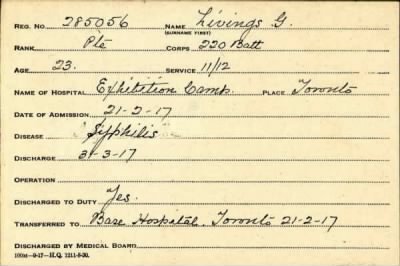 REG. NO. 285056 NAME Livings G.
(SURNAME FIRST)
RANK Pte CORPS 220 Batt
AGE 23. SERVICE 11/12
NAME OF HOSPITAL Exhibition Camp. PLACE Toronto
DATE OF ADMISSION 21-2-17
DISEASE "Sypphilis"
DISCHARGE 31-3-17
OPERATION
DISCHARGED TO DUTY Yes.
TRANSFERRED TO Base Hospital. Toronto 21-2-17
DISCHARGED BY MEDICAL BOARD
100M—9-17—H.Q. 1211-8-30.